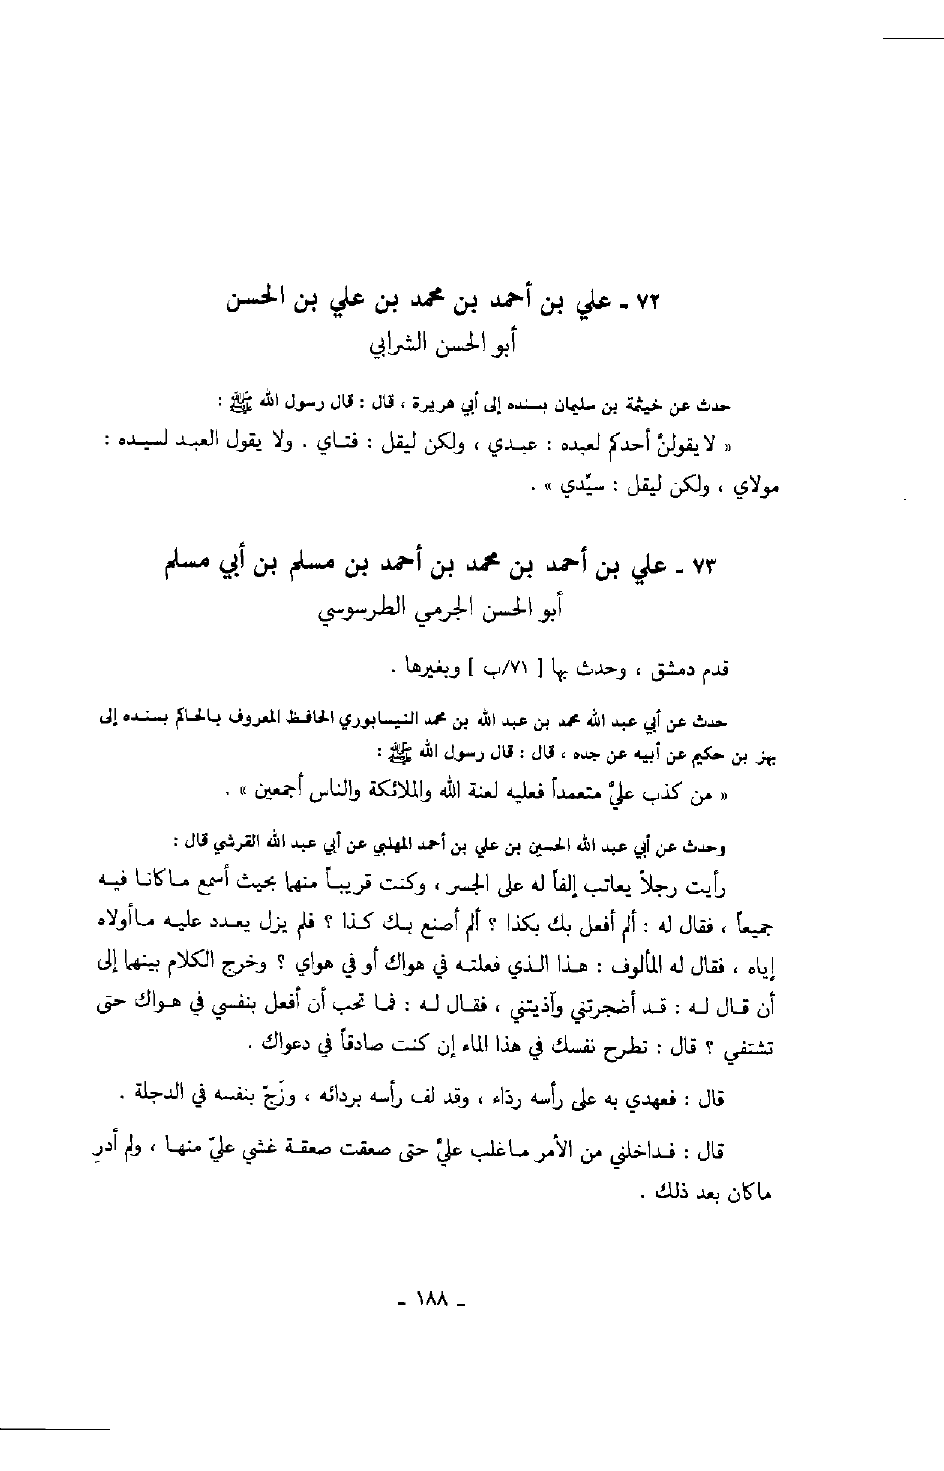 ٧٢ ـ علي بن أحمد بن محمد بن علي بن الحسن
أبو الحسن الشرابي
حدث عن خيثمة بن سليمان بسنده إلى أبي هريرة ، قال : قال رسول الله ﷺ :
« لا يقولنّ أحدكم لعبده : عبدي ، ولكن ليقل : فتاي . ولا يقول العبد لسيده :
مولاي ، ولكن ليقل : سيّدي » .
٧٣ ـ علي بن أحمد بن محمد بن أحمد بن مسلم بن أبي مسلم
أبو الحسن الجرمي الطرسوسي
قدم دمشق ، وحدث بها [ ٧١/ب ] وبغيرها .
حدث عن أبي عبد الله محمد بن عبد الله بن محمد النيسابوري الحافظ المعروف بالحاكم بسنده إلى
بهز بن حكيم عن أبيه عن جده ، قال : قال رسول الله ﷺ :
« من كذب عليّ متعمداً فعليه لعنة الله والملائكة والناس أجمعين » .
وحدث عن أبي عبد الله الحسين بن علي بن أحمد المهلبي عن أبي عبد الله القرشي قال :
رأيت رجلاً يعاتب إلفاً له على الجسر ، وكنت قريباً منهما بحيث أسمع ماكانا فيه
جميعاً ، فقال له : ألم أفعل بك بكذا ؟ ألم أصنع بك كذا ؟ فلم يزل يعدد عليه ماأولاه
إياه ، فقال له المألوف : هذا الذي فعلته في هواك أو في هواي ؟ وخرج الكلام بينهما إلى
أن قال له : قد أضجرتني وآذيتني ، فقال له : فما تحب أن أفعل بنفسي في هواك حتى
تشتفي ؟ قال : تطرح نفسك في هذا الماء إن كنت صادقاً في دعواك .
قال : فعهدي به على رأسه ردّاء ، وقد لف رأسه بردائه ، وزَجّ بنفسه في الدجلة .
قال : فداخلني من الأمر ماغلب عليّ حتى صعقت صعقة غشي عليّ منها ، ولم أدرِ
ماكان بعد ذلك .
ـ ١٨٨ ـ